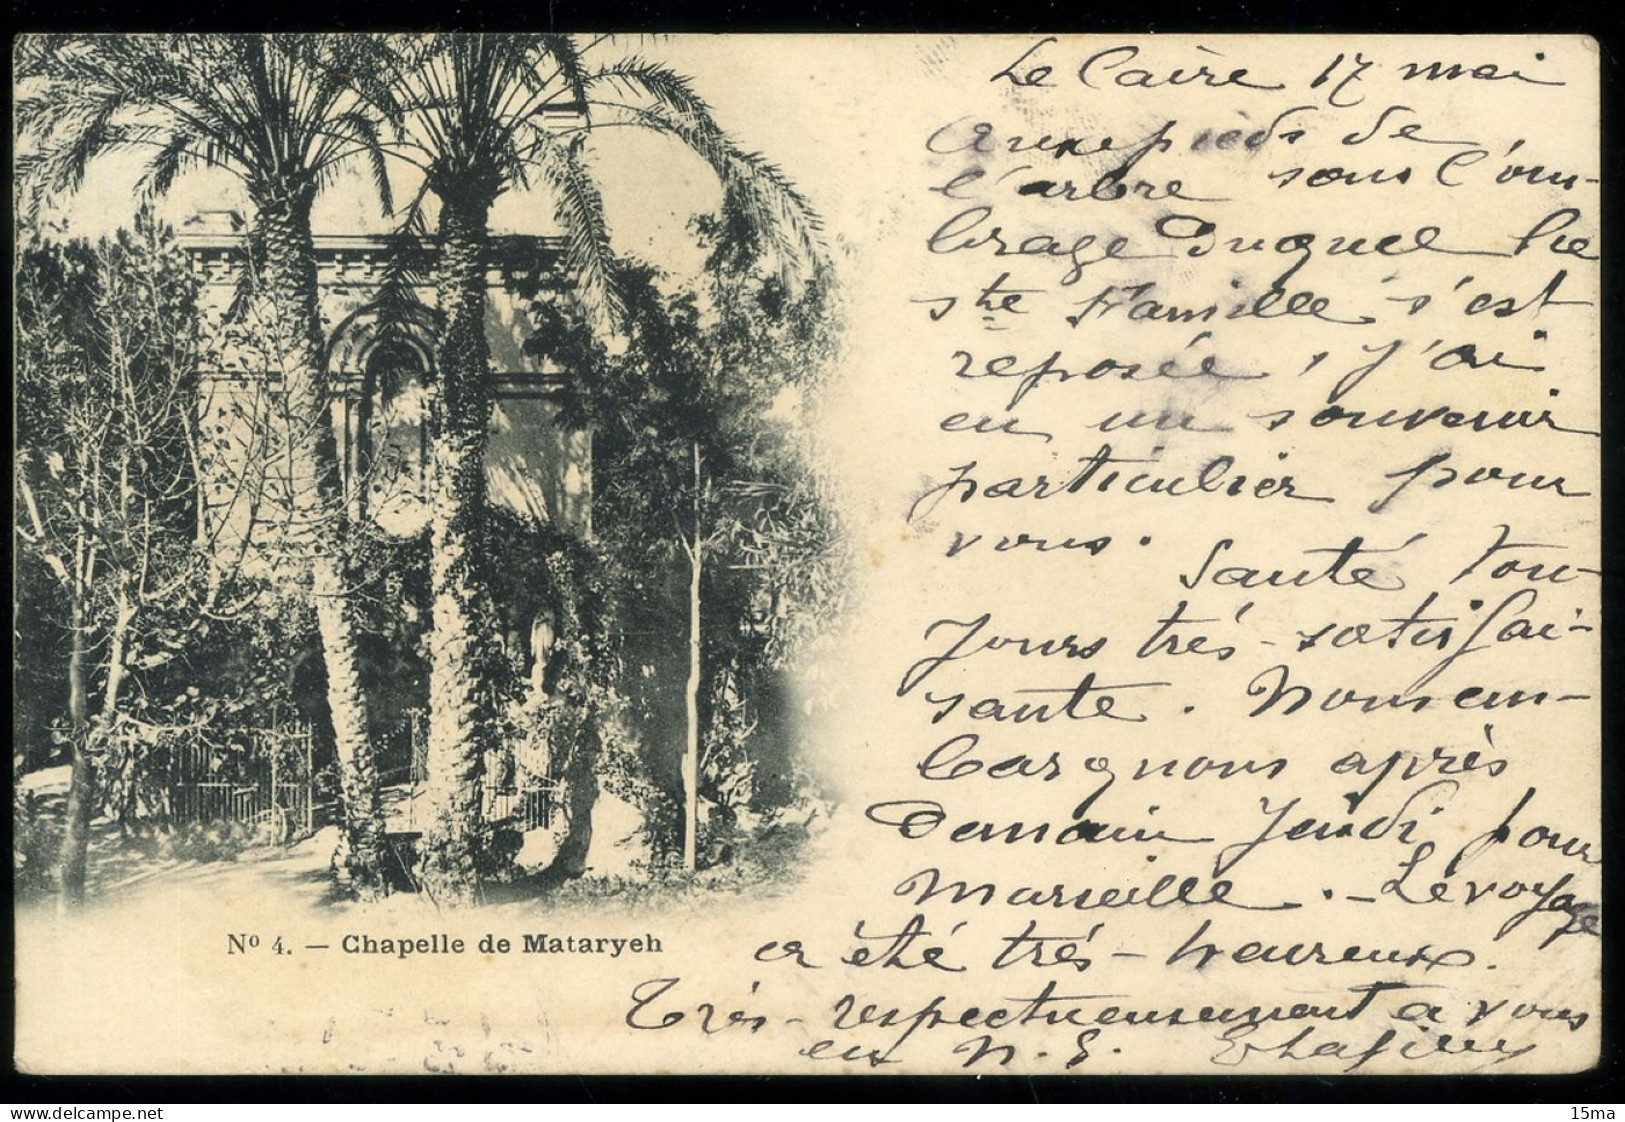 Le Caire 17 mai
Aux pieds de
l'arbre sous l'om-
brage duquel la
ste Famille s'est
reposée, j'ai
eu un souvenir
particulier pour
vous.
Santé tou-
jours très-satisfai-
sante. Nous em-
barquons après
demain jeudi pour
Marseille. - Le voyage
a été très-heureux.
Très-respectueusement à vous
en N. S.
No 4. — Chapelle de Mataryeh
delcampe.net
15ma